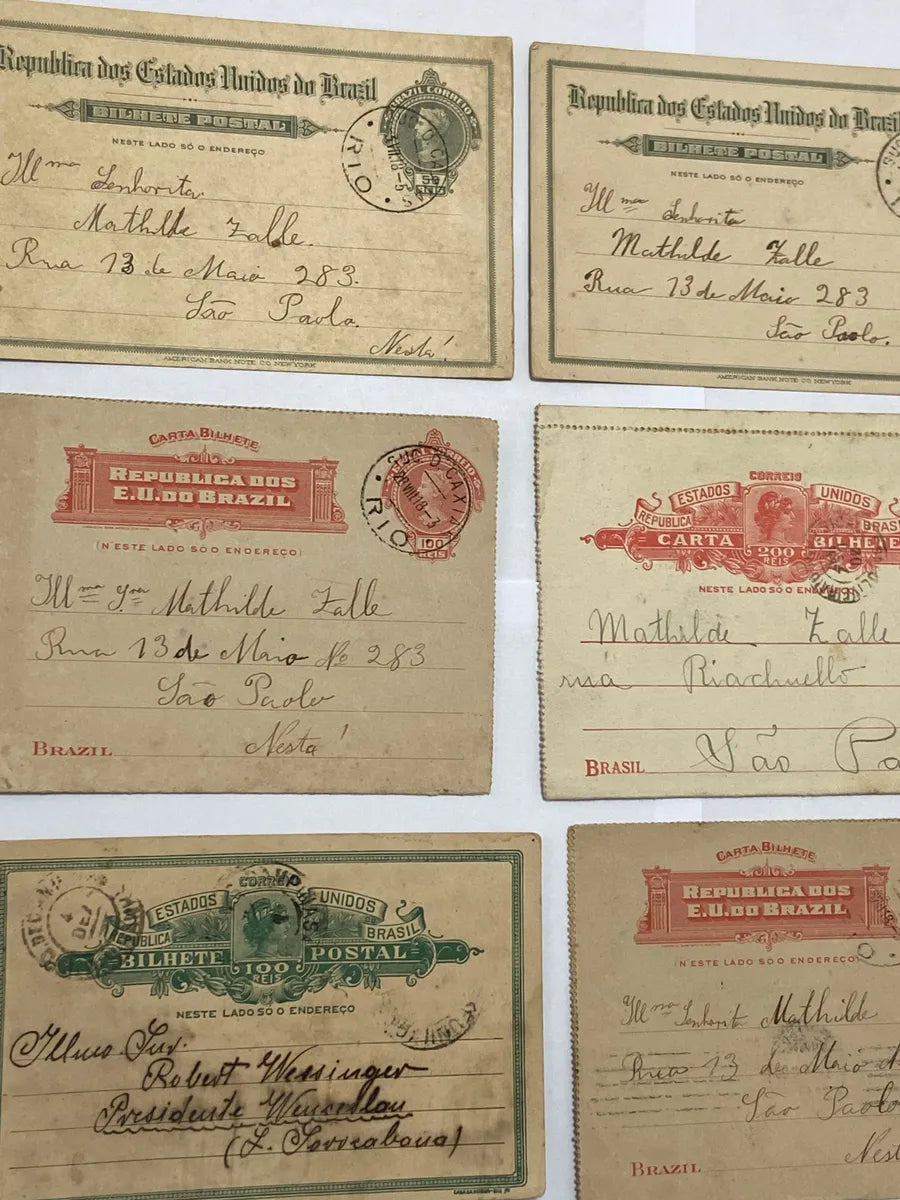 Republica dos Estados Unidos do Brazil
BILHETE POSTAL
NESTE LADO SÓ O ENDEREÇO
BRAZIL CORREIO
50
REIS
RIO
Ill ma Senhorita
Mathilde Zalle.
Rua 13 de Maio 283.
São Paolo.
Nesta!
AMERICAN BANK NOTE CO NEW YORK
Republica dos Estados Unidos do Brazil
BILHETE POSTAL
NESTE LADO SÓ O ENDEREÇO
Ill ma Senhorita
Mathilde Zalle
Rua 13 de Maio 283
São Paolo.
AMERICAN BANK NOTE CO NEW YORK
CARTA BILHETE
REPUBLICA DOS
E.U. DO BRAZIL
(N'ESTE LADO SÓ O ENDEREÇO)
100
REIS
SUC. D. CAXIA
RIO
Ill ma Sra Mathilde Zalle
Rua 13 de Maio No 283
São Paolo
BRAZIL Nesta!
CORREIO
ESTADOS UNIDOS
REPUBLICA BRAS
CARTA 200 BILHETE
REIS
NESTE LADO SÓ O ENDEREÇO
Mathilde Zalle
rua Riachuello
BRASIL São Pa
CORREIO
ESTADOS UNIDOS
REPUBLICA BRASIL
BILHETE 100 POSTAL
REIS
NESTE LADO SÓ O ENDEREÇO
Illmo. Snr.
Robert Wessinger
Presidente Wenceslau
(L. Sorocabana)
CARTA BILHETE
REPUBLICA DOS
E.U. DO BRAZIL
(N'ESTE LADO SÓ O ENDEREÇO)
Ill ma Senhorita Mathilde
Rua 13 de Maio N
São Paolo
BRAZIL Nest